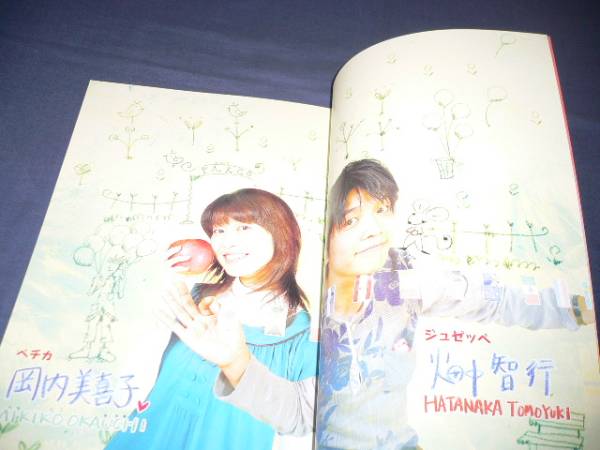 ペチカ
岡内美喜子
MIKIKO OKAUCHI
ジュゼッペ
畑中智行
HATANAKA TOMOYUKI